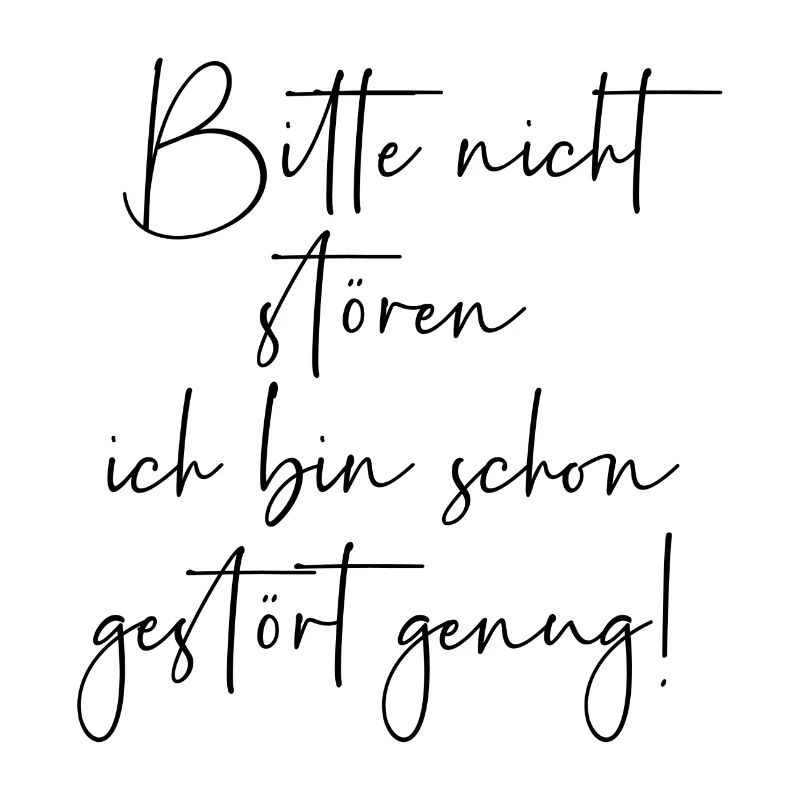 Bitte nicht
stören
ich bin schon
gestört genug!